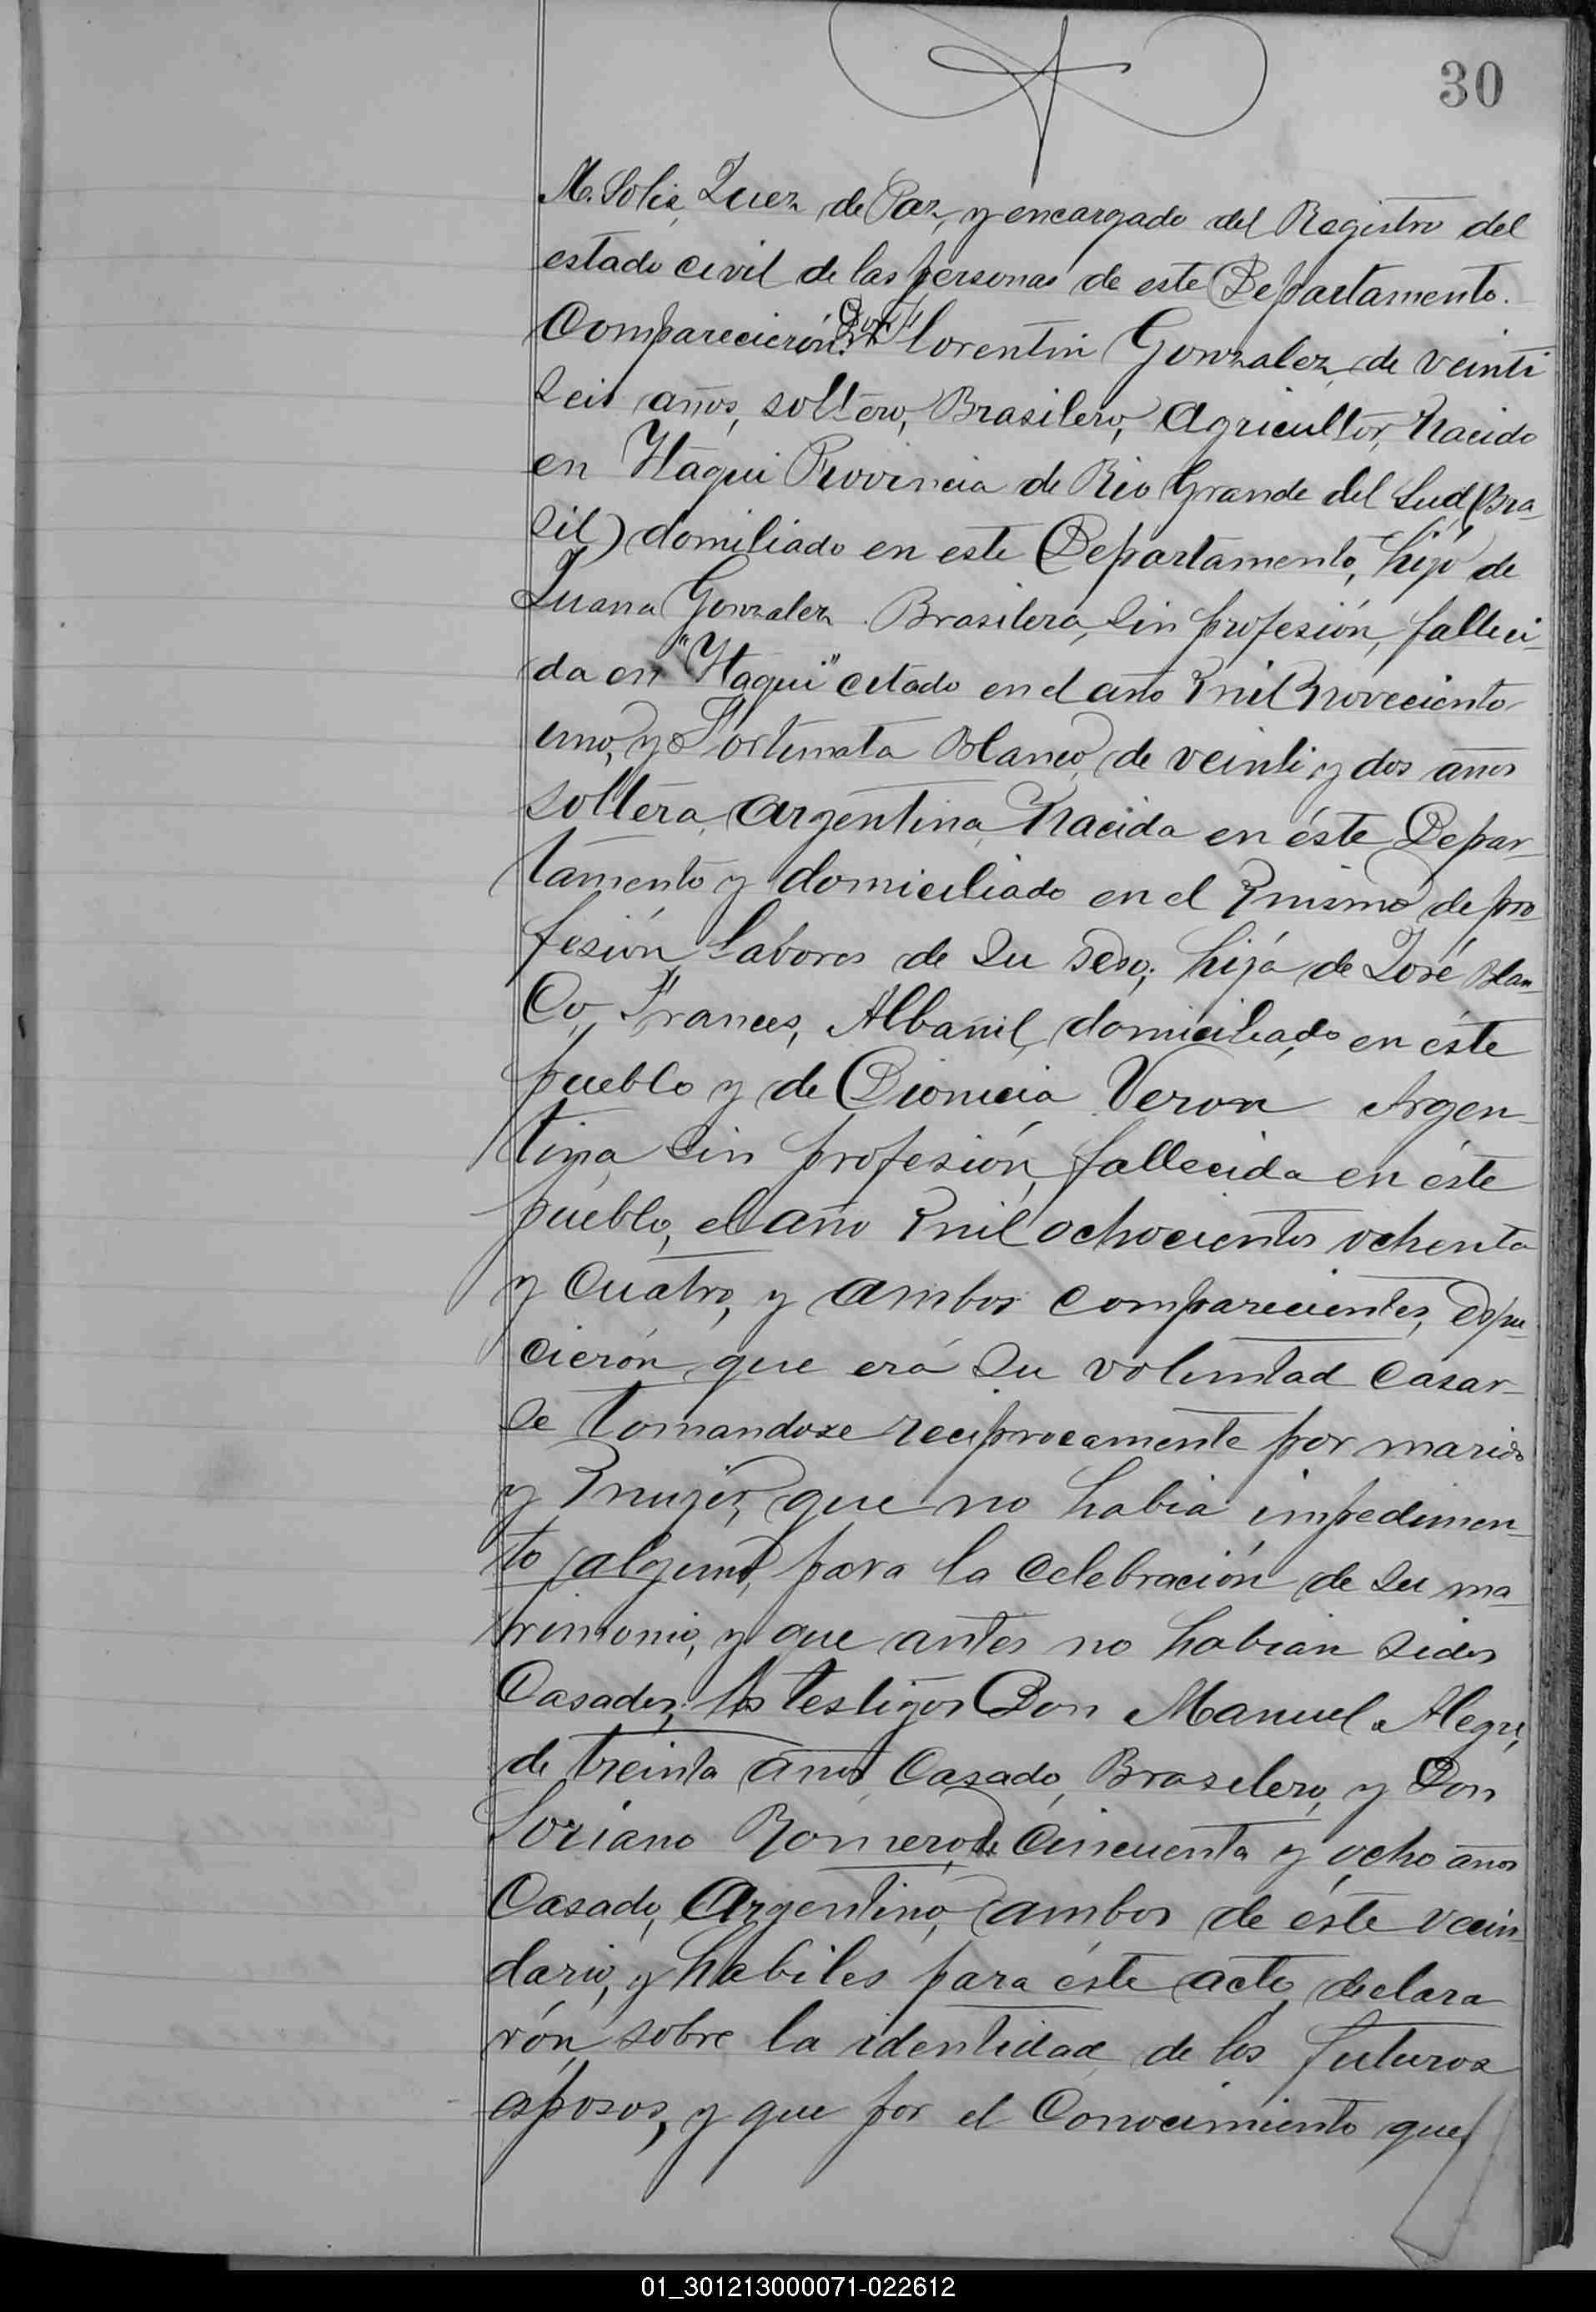 30
M. Solis, Juez de Paz, y encargado del Registro del
estado civil de las personas de este Departamento.
Comparecierón: Don Florentin Gonzalez, de veinti
seis años, soltero, Brasilero, Agricultor, nacido
en Itaqui Provincia de Rio Grande del Sud (Bra-
sil) domiliado en este Departamento, hijo de
Juana Gonzalez Brasilera, sin profesión, falleci-
da en "Itaqui" citado en el año mil noveciento
uno, y Fortunata Blanco, de veinti y dos años
soltera, Argentina, nacida en éste Depar-
tamento y domiciliado en el mismo de pro
fesión labores de su sexo, hija de José Blan-
co, Frances, Albañil, domiciliado en éste
pueblo y de Dionicia Veron Argen-
tina, sin profesión, fallecida en éste
pueblo, el año mil ochocientos ochenta
y cuatro, y ambos comparecientes, espu-
cierón que erá su voluntad casar-
se tomandose reciprocamente por marido
y mujer, que no habia impedimen-
to alguno, para la celebración de su ma-
trimonio, y que antes no habian sidos
Casados, los testigos Don Manuel Alegre,
de treinta años, Casado, Brasilero, y Don
Soriano Romero, de cincuenta y ocho años
Casado, Argentino, ambos de éste vecin-
dario, y habiles para éste acto, declara
rón, sobre la identidad de los futuros
esposos, y que por el Conocimiento que
01_301213000071-022612